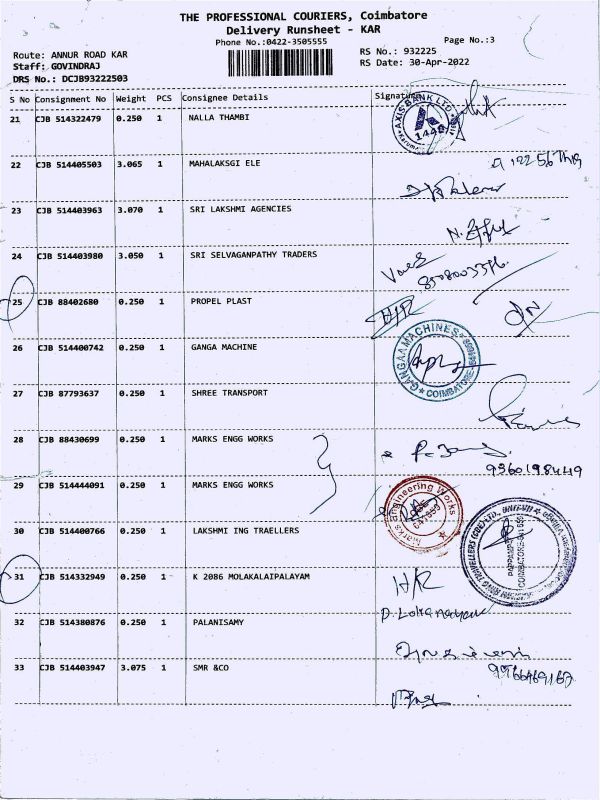 THE PROFESSIONAL COURIERS, Coimbatore
Delivery Runsheet - KAR
Phone No.:0422-3505555
Page No.:3
Route: ANNUR ROAD KAR
RS No.: 932225
Staff: GOVINDRAJ
RS Date: 30-Apr-2022
DRS No.: DCJB93222503
S No Consignment No Weight PCS Consignee Details Signature
21 CJB 514322479 0.250 1 NALLA THAMBI
AXIS BANK LTD
1440
22 CJB 514405503 3.065 1 MAHALAKSGI ELE
23 CJB 514403963 3.070 1 SRI LAKSHMI AGENCIES
24 CJB 514403980 3.050 1 SRI SELVAGANPATHY TRADERS
25 CJB 88402680 0.250 1 PROPEL PLAST
H/R
26 CJB 514400742 0.250 1 GANGA MACHINE
GANGAA MACHINES
COIMBATORE
27 CJB 87793637 0.250 1 SHREE TRANSPORT
28 CJB 88430699 0.250 1 MARKS ENGG WORKS
9360198449
29 CJB 514444091 0.250 1 MARKS ENGG WORKS
Marks Engineering Works
30 CJB 514400766 0.250 1 LAKSHMI ING TRAELLERS
31 CJB 514332949 0.250 1 K 2086 MOLAKALAIPALAYAM
H/R
32 CJB 514380876 0.250 1 PALANISAMY
33 CJB 514403947 3.075 1 SMR &CO